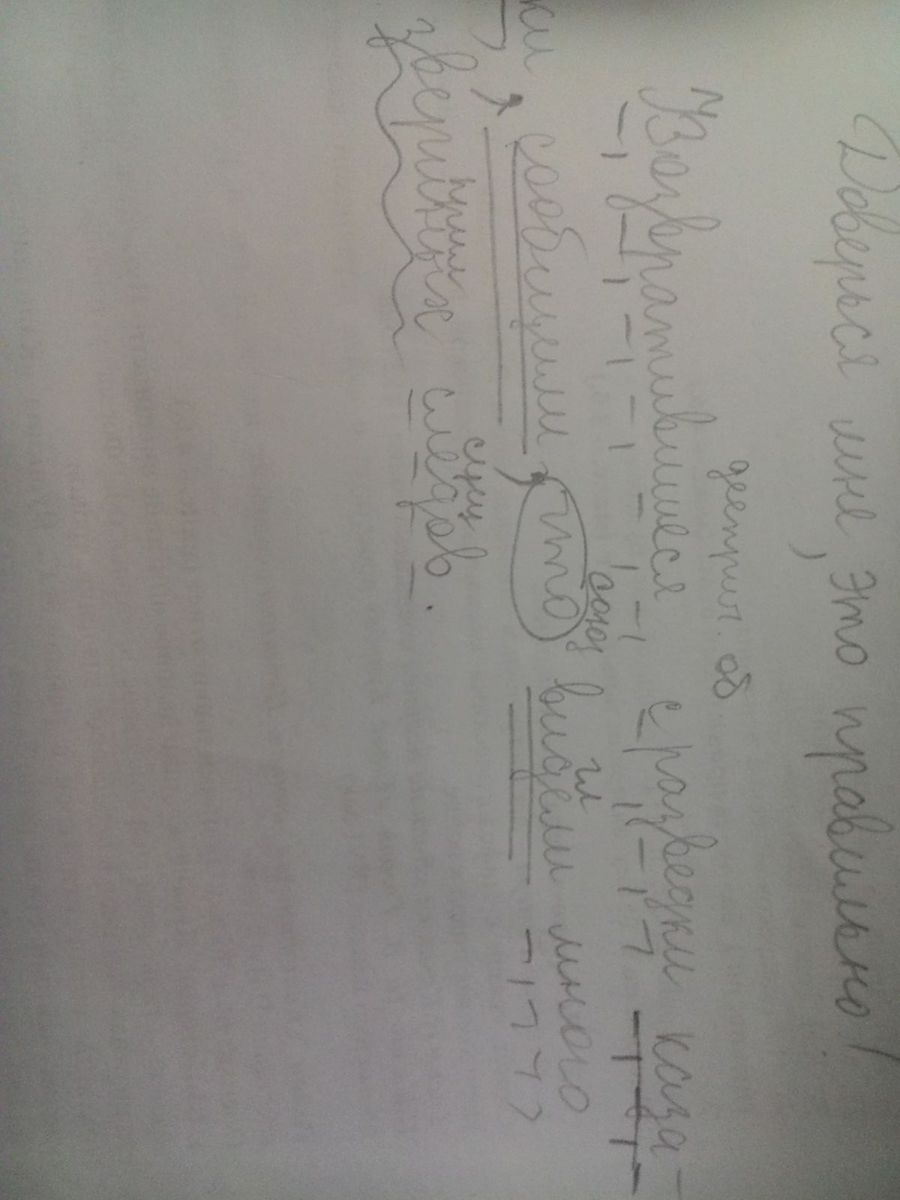 Доверься мне, это правильно!
дееприч. об
Возвратившиеся с разведки каза-
союз гл
ки, сообщили, что видели много
прил сущ
звериных следов.